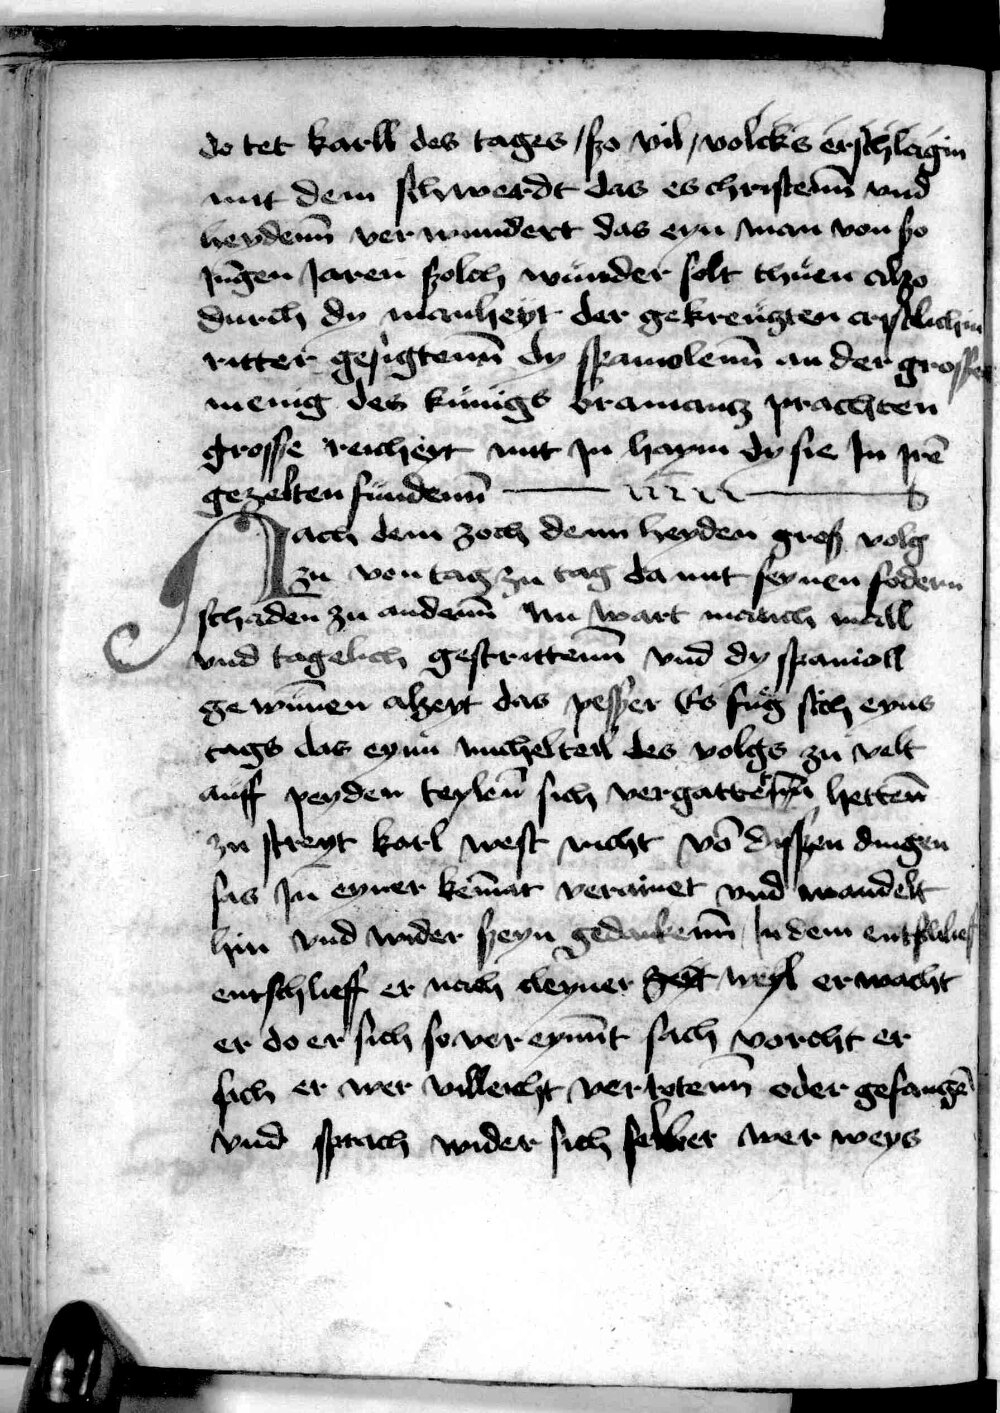 do tet karll des tages / so vil / volcks erschlagin
mit dem schwerdt das es christenn vnd
heydenn verwundert das eyn man von so
Jungen Jaren solch wunder solt thuen also
durch dy manheyt der gekreutzten cristlichin
ritter gesigtenn dy spaniolenn an der grossen
menig des kunigs bramantz prachten
grosse reicheyt mit Jn haym dy sie Jn Jrē
gezelten fundenn
Nach dem zoch denn heyden groß volg
zu von tag zu tag da mit seynen fodern
schaden zu andenn Nu wart manich mall
vnd tagelich gestrittenn vnd dy spanioll
gewunen alzeyt das pesser Es fug sich eyns
tags das eynn michel teil des volgs zu velt
auff peyden teylen sich vergattetenn hetten
zu streyt karl west nicht vō dissen dingen
sas Jn eyner kemat verainet vnd wandelt
hin vnd wider seyn gedankenn Jn dem entschlieff
entschlieff er nach cleyner zeyt weyl erwacht
er do er sich so vereynnt sach vorcht er
sich er wer villeicht vertotenn oder gefangē
vnd sprach wider sich selber wer weys